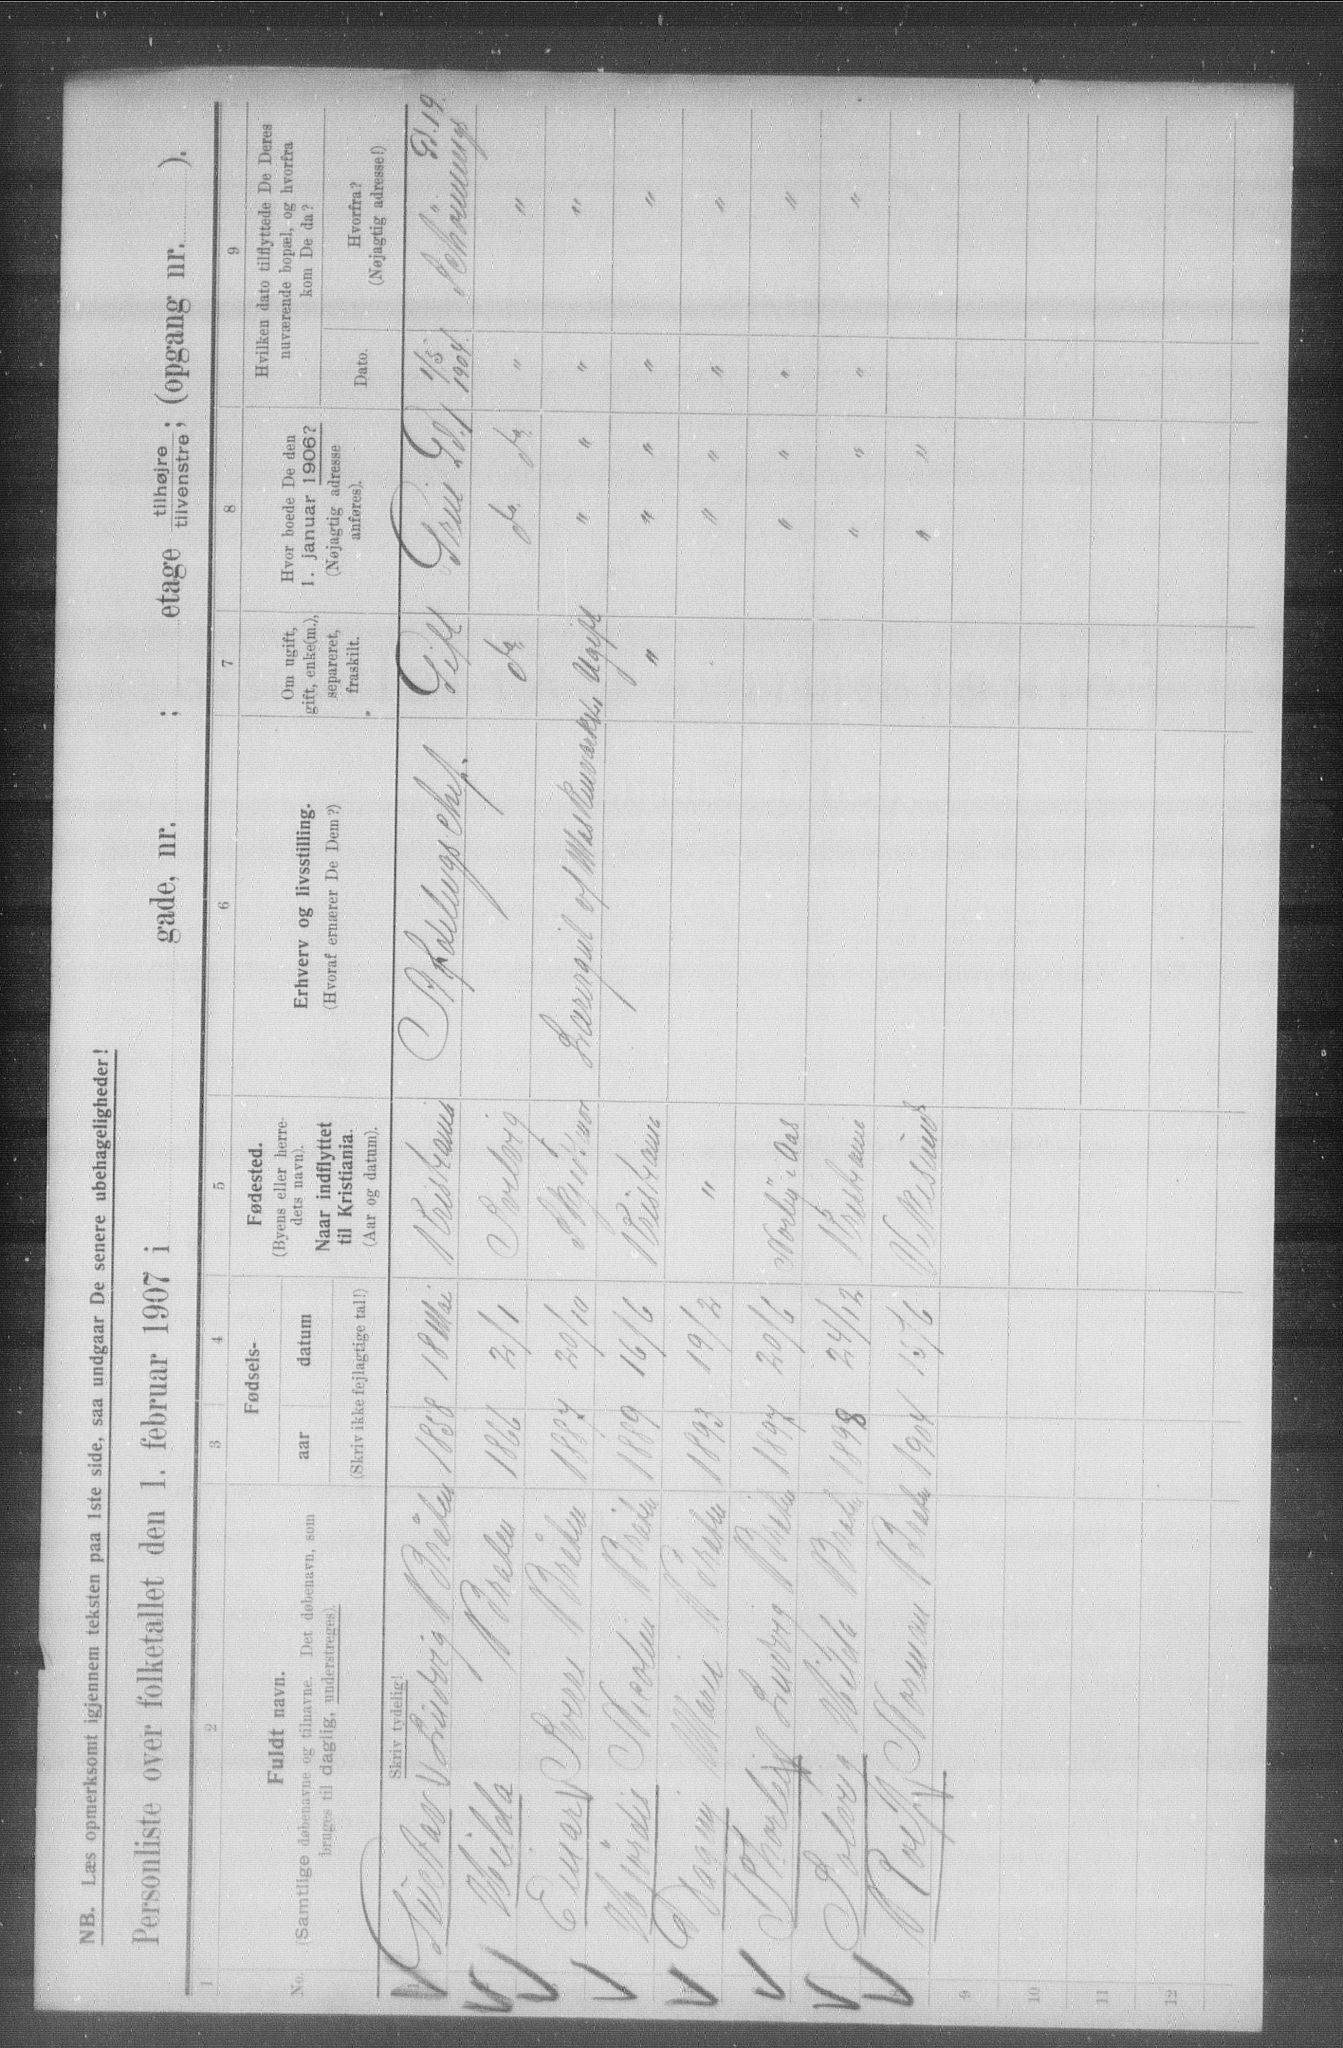 NB. Læs opmerksomt igjennem teksten paa 1ste side, saa undgaar De senere ubehageligheder!
Personliste over folketallet den 1. februar 1907 i gade, nr. ; etage tilhøjre tilvenstre; (opgang nr. ).
1 2 3 4 5 6 7 8 9
No.
Fuldt navn.
(Samtlige døbenavne og tilnavne. Det døbenavn, som
bruges til daglig, understreges).
Skriv tydelig!
Fødsels-
aar datum
(Skriv ikke fejlagtige tal!)
Fødested.
(Byens eller herre-
dets navn).
Naar indflyttet
til Kristiania.
(Aar og datum).
Erhverv og livsstilling.
(Hvoraf ernærer De Dem?)
Om ugift,
gift, enke(m.),
separeret,
fraskilt.
Hvor boede De den
1. januar 1906?
(Nøjagtig adresse
anføres).
Hvilken dato tilflyttede De Deres
nuværende bopæl, og hvorfra
kom De da?
Dato.
Hvorfra?
(Nøjagtig adresse!)
Gustav Ludvig Bråten 1858 18 Mai Kristiania Afdelingschef. Gift Grüi. Gd. 1 1/5 1904. Schønnings Gd. 19
Hilda Braten 1866 2/1 Solvig do do do " "
Einar Sverre Bråten 1887 20/10 Lærergut Ugift " " " "
Hjørdis Nicolin Braten 1889 16/6 Kristiania " " " " "
Dagni Marie Braten 1893 19/2 " " " " "
Thorleif Ludvig Braten 1897 20/6 Aas " " " "
Solveig Hilda Braten 1898 24/12 Kristiania " " " "
Rolf Norman Braten 1904 15/6 " "
9
10
11
12